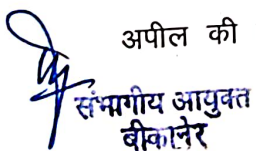 अपील की
संभागीय आयुक्त
बीकानेर